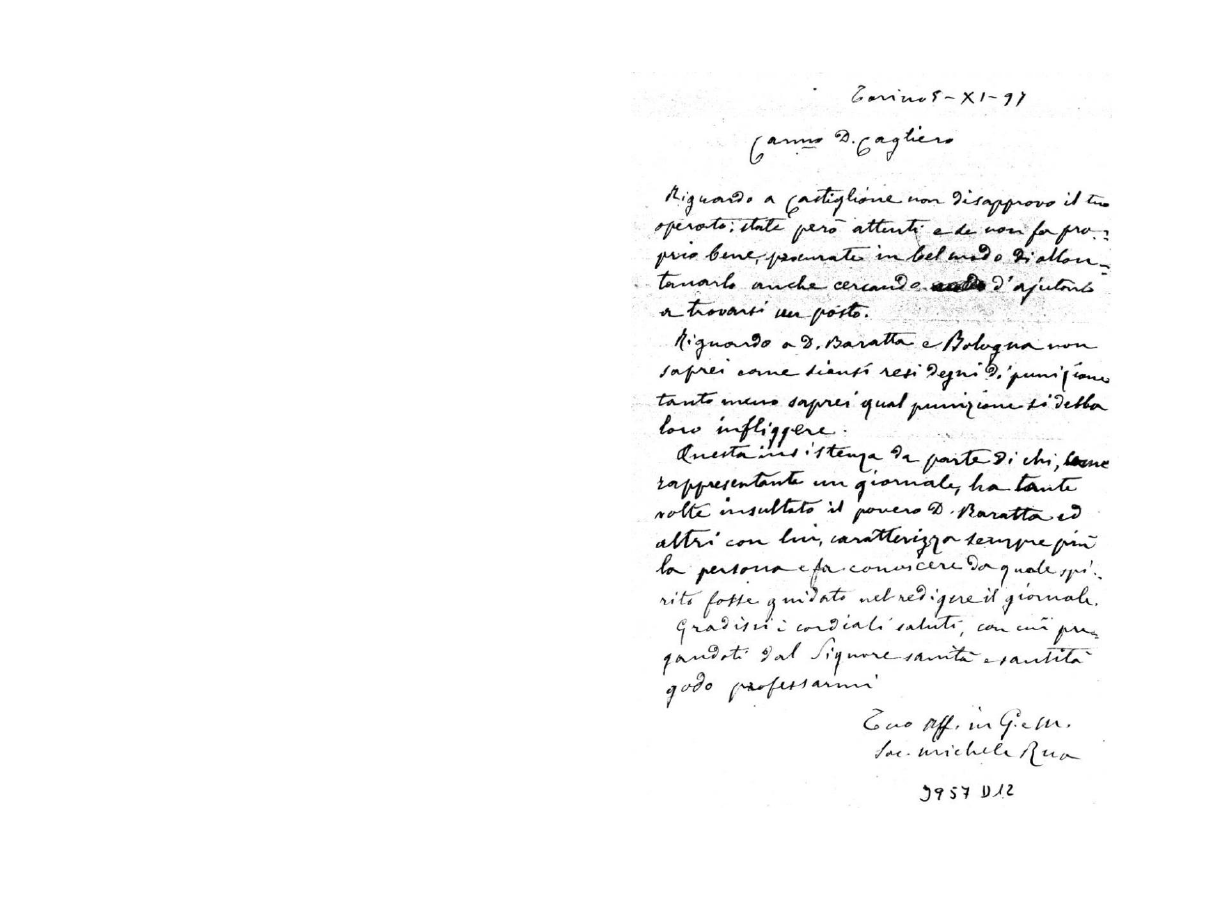 Torino 5-XI-97
Carmo D. Cagliero
Riguardo a Castiglione non disapprovo il tuo
operato; state però attenti e se non fa pro-
prio bene, procurate in bel modo di allon-
tanarlo anche cercando d'ajutarlo
a trovarsi un posto.
Riguardo a D. Baratta e Bologna non
saprei come siansi resi degni di punizione
tanto meno saprei qual punizione si debba
loro infliggere.
Questa insistenza da parte di chi, come
rappresentante un giornale, ha tante
volte insultato il povero D. Baratta ed
altri con lui, caratterizza sempre più
la persona e fa conoscere da quale spi-
rito fosse guidato nel redigere il giornale.
Gradisci i cordiali saluti, con cui pre-
gandoti dal Signore sanità e santità
godo professarmi
Tuo aff. in G. e M.
Sac. Michele Rua
3957 D12